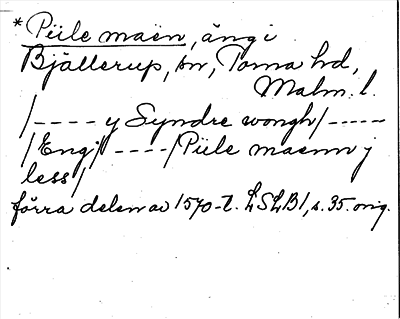 * Piile maën, äng i
Bjällerup, sn, Torna hd,
Malm. l.
/---- y Syndre wongh/-----
/Eng/ ----/Piile maenn j
less/
förra delen av 1570-t. LSLB1, s. 35. orig.